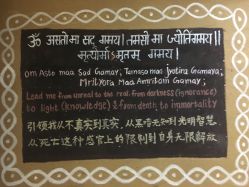 ॐ असतो मा सद् गमय। तमसो मा ज्योतिर्गमय॥
मृत्योर्माऽमृतम् गमय।
Om Asto maa Sad Gamay, Tamaso maa Jyotira Gamaya;
Mrityora Maa Amritam Gamay;
Lead me from unreal to the real, from darkness (ignorance)
to light (knowledge) & from death, to immortality
引领我从不真实到真实，从黑暗无知到光明智慧，
从死亡这种感官上的限制到自身无限解放